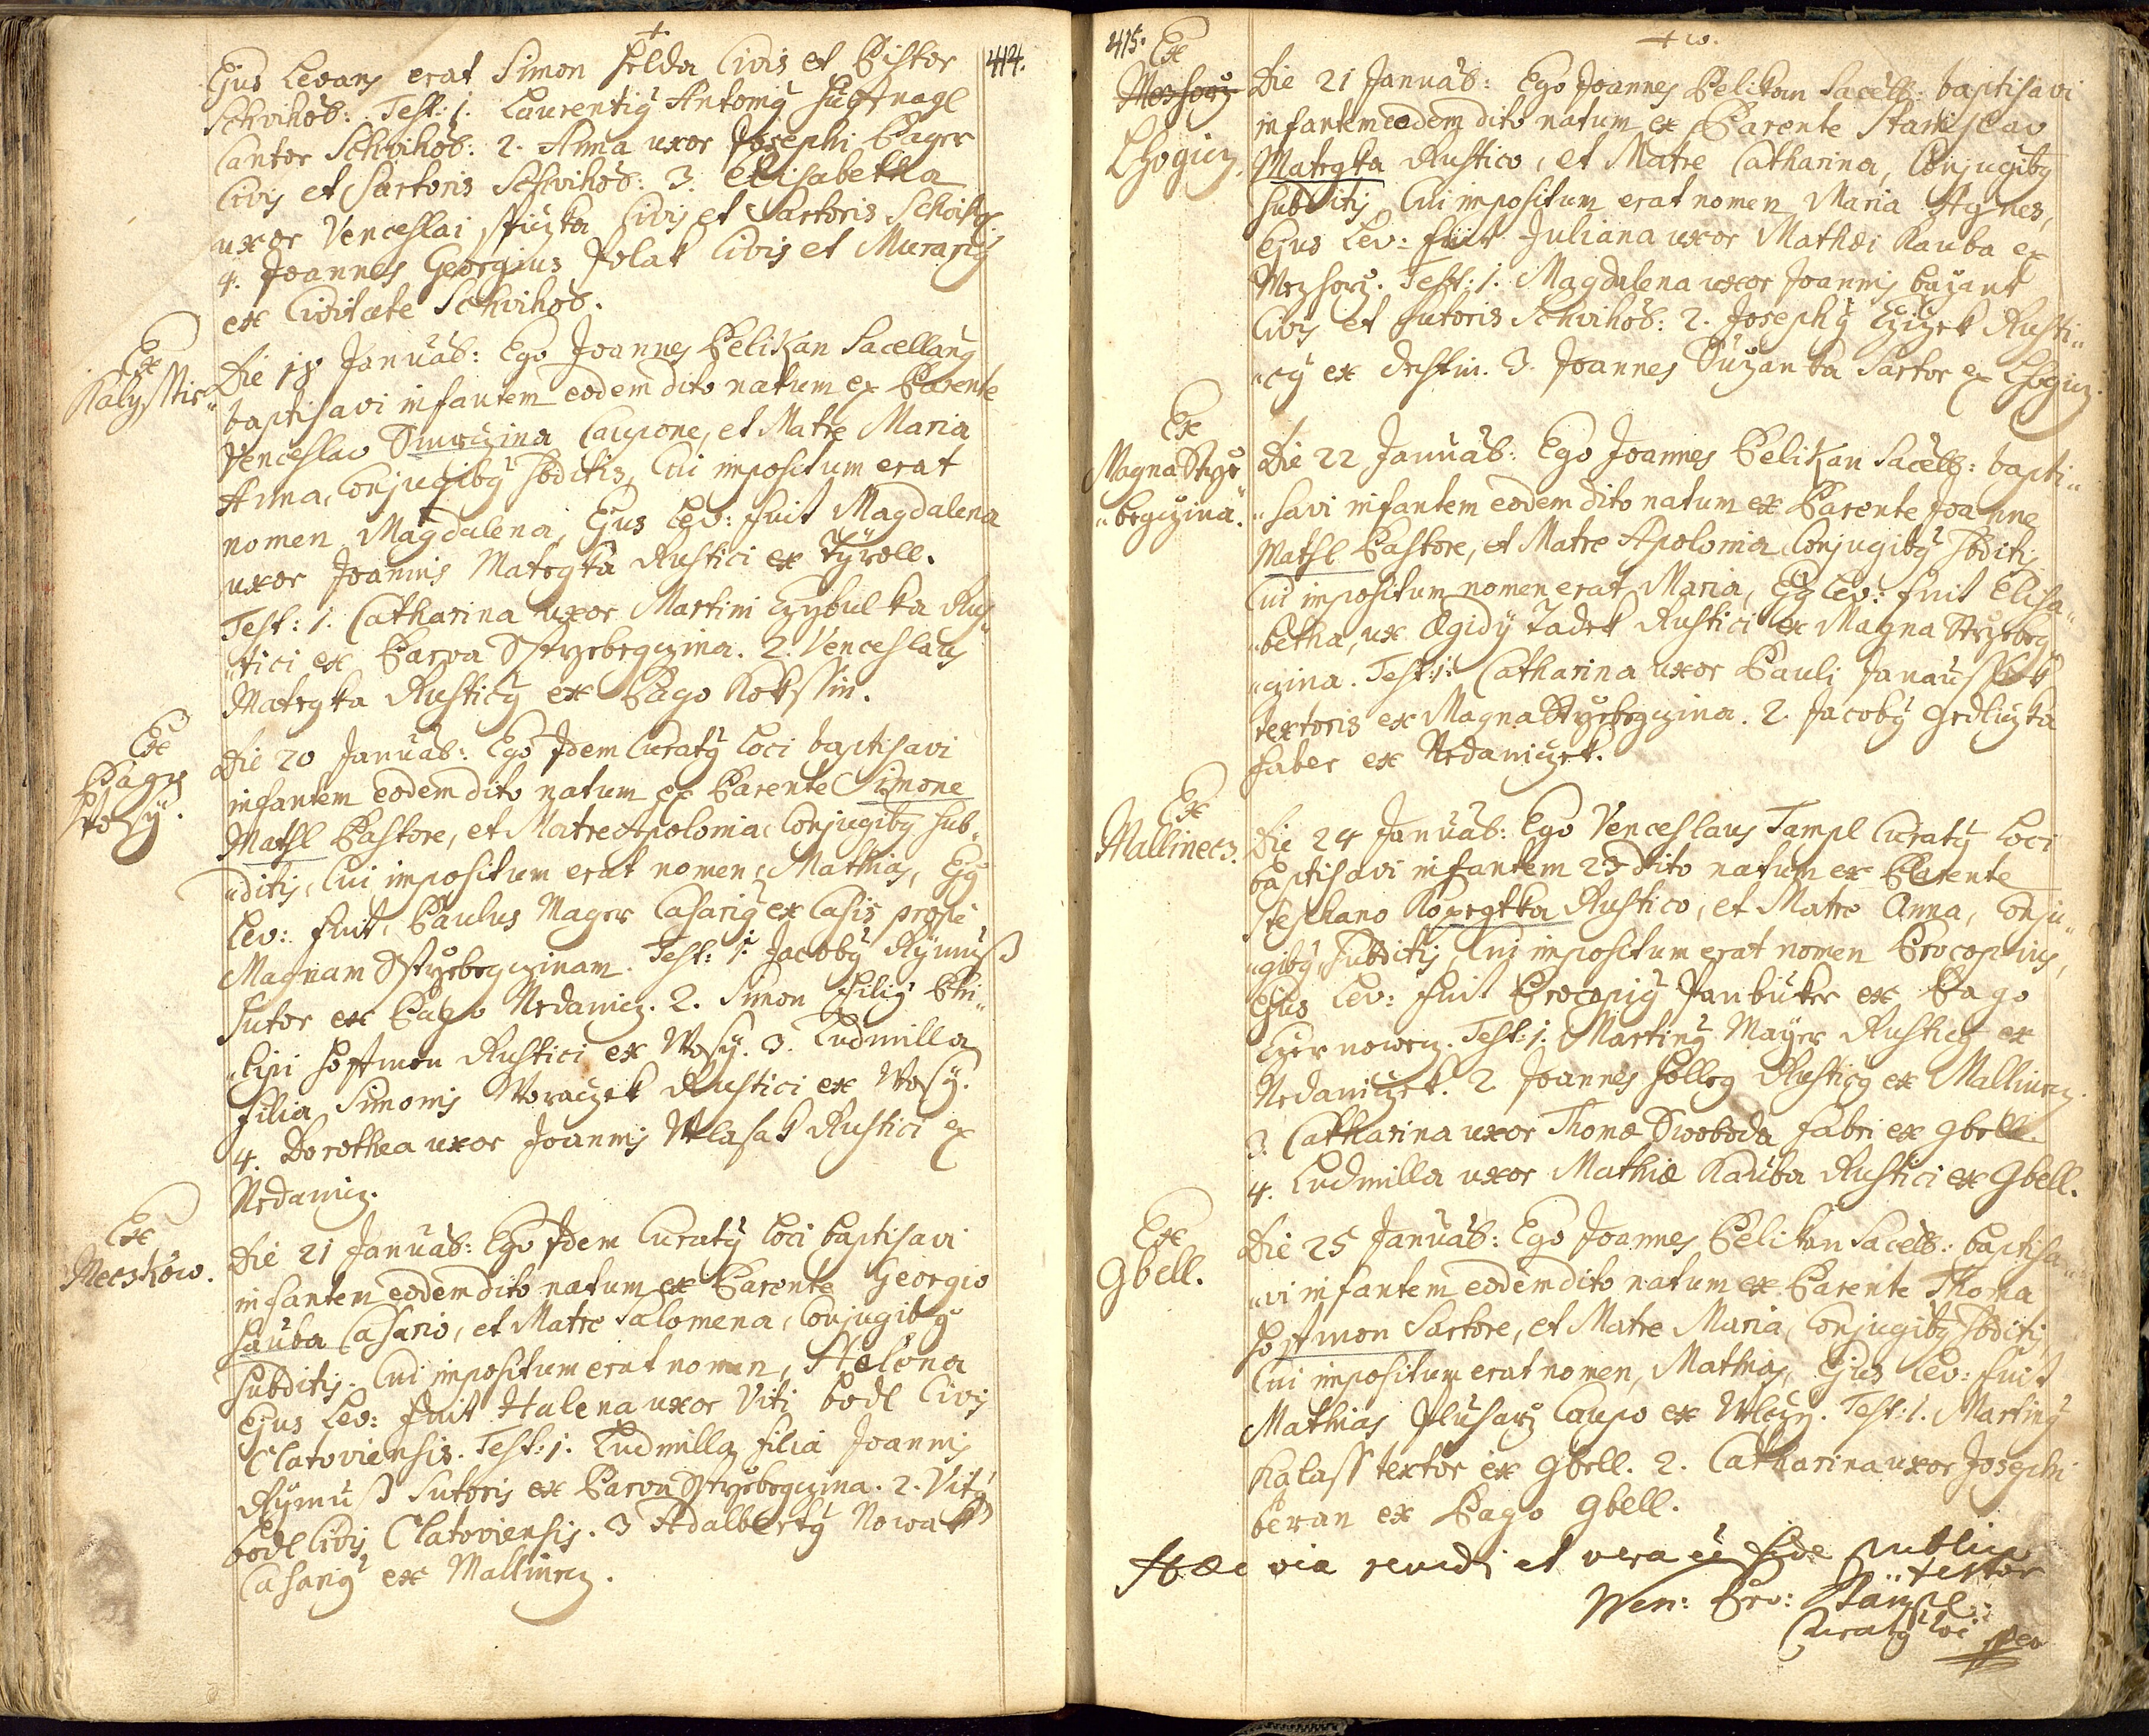 414.
Ejus Levans erat Simon Holda Civis et Pistor
Schvihov: Test: 1. Laurentiy Antoniy Huffnagl
Cantor Schvihov: 2. Anna uxor Josephi Pager
Civis et Sartoris Schvihov: 3. Elisabetha
uxor Venceslai Civis et Sartoris Schvihov:
4. Joannes Georgius Polak Civis et Murariy
ex Civitate Schvihov.
Ex
Kalysstie
Die 18 Januar: Ego Joannes Pelikan Sacellany
baptisavi infantem eodem dito natum ex Parente
Venceslao Smrczina Caupone, et Matre Maria
Anna, Conjugiby Sbditis, Cui impositum erat
nomen Magdalena, Ejus Lev: fuit Magdalena
uxor Joannis Mategka Rustici ex Tyroll.
Test: 1. Catharina uxor Martini Czybulka Rus„
„tici ex Parva Styrbegczina. 2. Venceslaus
Mategka Rusticy ex Pago Kokssin.
Ex
Pago
Wosy.
Die 20 Januar: Ego Idem Curaty Loci baptisavi
infantem eodem dito natum ex Parente Simone
Mathl Pastore, et Matre Apolonia Conjugiby Sub„
„ditis, Cui impositum erat nomen Mathias, Ejy
Lev: fuit Paulus Mager Casariy ex Casis prope
Magnam Styrbegczinam. Test: 1. Jacoby Rymuß
Sutor ex Pago Nedanicz. 2. Simon Filiy Phi„
„lipi Hoffmon Rustici ex Wosy. 3. Ludmilla
filia Simonis Woraczek Rustici ex Wosy.
4. Dorothea uxor Joannis Wlasak Rustici ex
Nedanicz.
Ex
Mecskow.
Die 21 Januar: Ego Idem Curaty Loci baptisavi
infantem eodem dito natum ex Parente Georgio
Hauba Casario, et Matre Salomena, Conjugiby
Subditis. Cui impositum erat nomen, Helena
Ejus Lev: fuit Halena uxor Viti bodl Civis
Clatoviensis. Test: 1. Ludmilla filia Joannis
Rymuß Sutoris ex Parva Styrbegczina. 2. Vity
bodl Civis Clatoviensis. 3 Adalberty Nowak
Casariy ex Mallinecz.
415.
Ex
Mezhorz
Lhoqicz.
Die 21 Januar: Ego Joannes Pelikan Sacell: baptisavi
infantem eodem dito natum ex Parente Stanislao
Mategka Rustico, et Matre Catharina, Conjugiby
Subditis, Cui impositum erat nomen Maria Agnes,
Ejus Lev: fuit Juliana uxor Mathæi Kauba ex
Mezhorz. Test: 1. Magdalena uxor Joannis
Civis et Sutoris Schvihov: 2. Josephy Czizek Rusti„
„cy ex 3. Joannes Suzanka Sartor ex Lhoqicz.
Ex
Magna Styr„
„begczina.
Die 22 Januar: Ego Joannes Pelikan Sacell: bapti„
„savi infantem eodem dito natum ex Parente Joanne
Mathl Pastore, et Matre Apolonia Conjugiby Sbditis
Cui impositum nomen erat Maria, Ejy Lev: fuit Elisa„
„betha, ux Ægidy Tadek Rustici ex Magna Styrbeg„
„czina. Test: 1. Catharina uxor Pauli Janaussek
textoris ex Magna Styrbegczina. 2. Jacoby Hrdliczka
faber ex Nedaniczek.
Ex
Mallinecz.
Die 24 Januar: Ego Venceslaus Tampl Curaty Loci
baptisavi infantem 23 dito natum ex Parente
Stephano Kopegtka Rustico, et Matre Anna, Conju„
„giby Subditis, Cui impositum erat nomen Procopius,
Ejus Lev: fuit Procopiy Janbuker ex Pago
Czernowecz. Test: 1. Martiny Mayer Rusticy ex
Nedaniczek. 2 Joannes Holley Rusticy ex Mallinecz.
3. Catharina uxor Thomæ Swoboda fabri ex Gbell.
4. Ludmilla uxor Mathiæ Kauba Rustici ex Gbell.
Ex
Gbell.
Die 25 Januar: Ego Joannes Pelikan Sacell: baptisa„
„vi infantem eodem dito natum ex Parente Thoma
Hoffmon Sartore, et Matre Maria, Conjugiby Sbditis,
Cui impositum erat nomen, Mathias, Ejus Lev: fuit
Mathias Plusarz Caupo ex Wlczy. Test: 1. Martiny
Kalass textor ex Gbell. 2. Catharina uxor Josephi
beran ex Pago Gbell.
Hæc via revidi et vera fide publica
testor
Wen: Pro: Tampl
Curaty loci